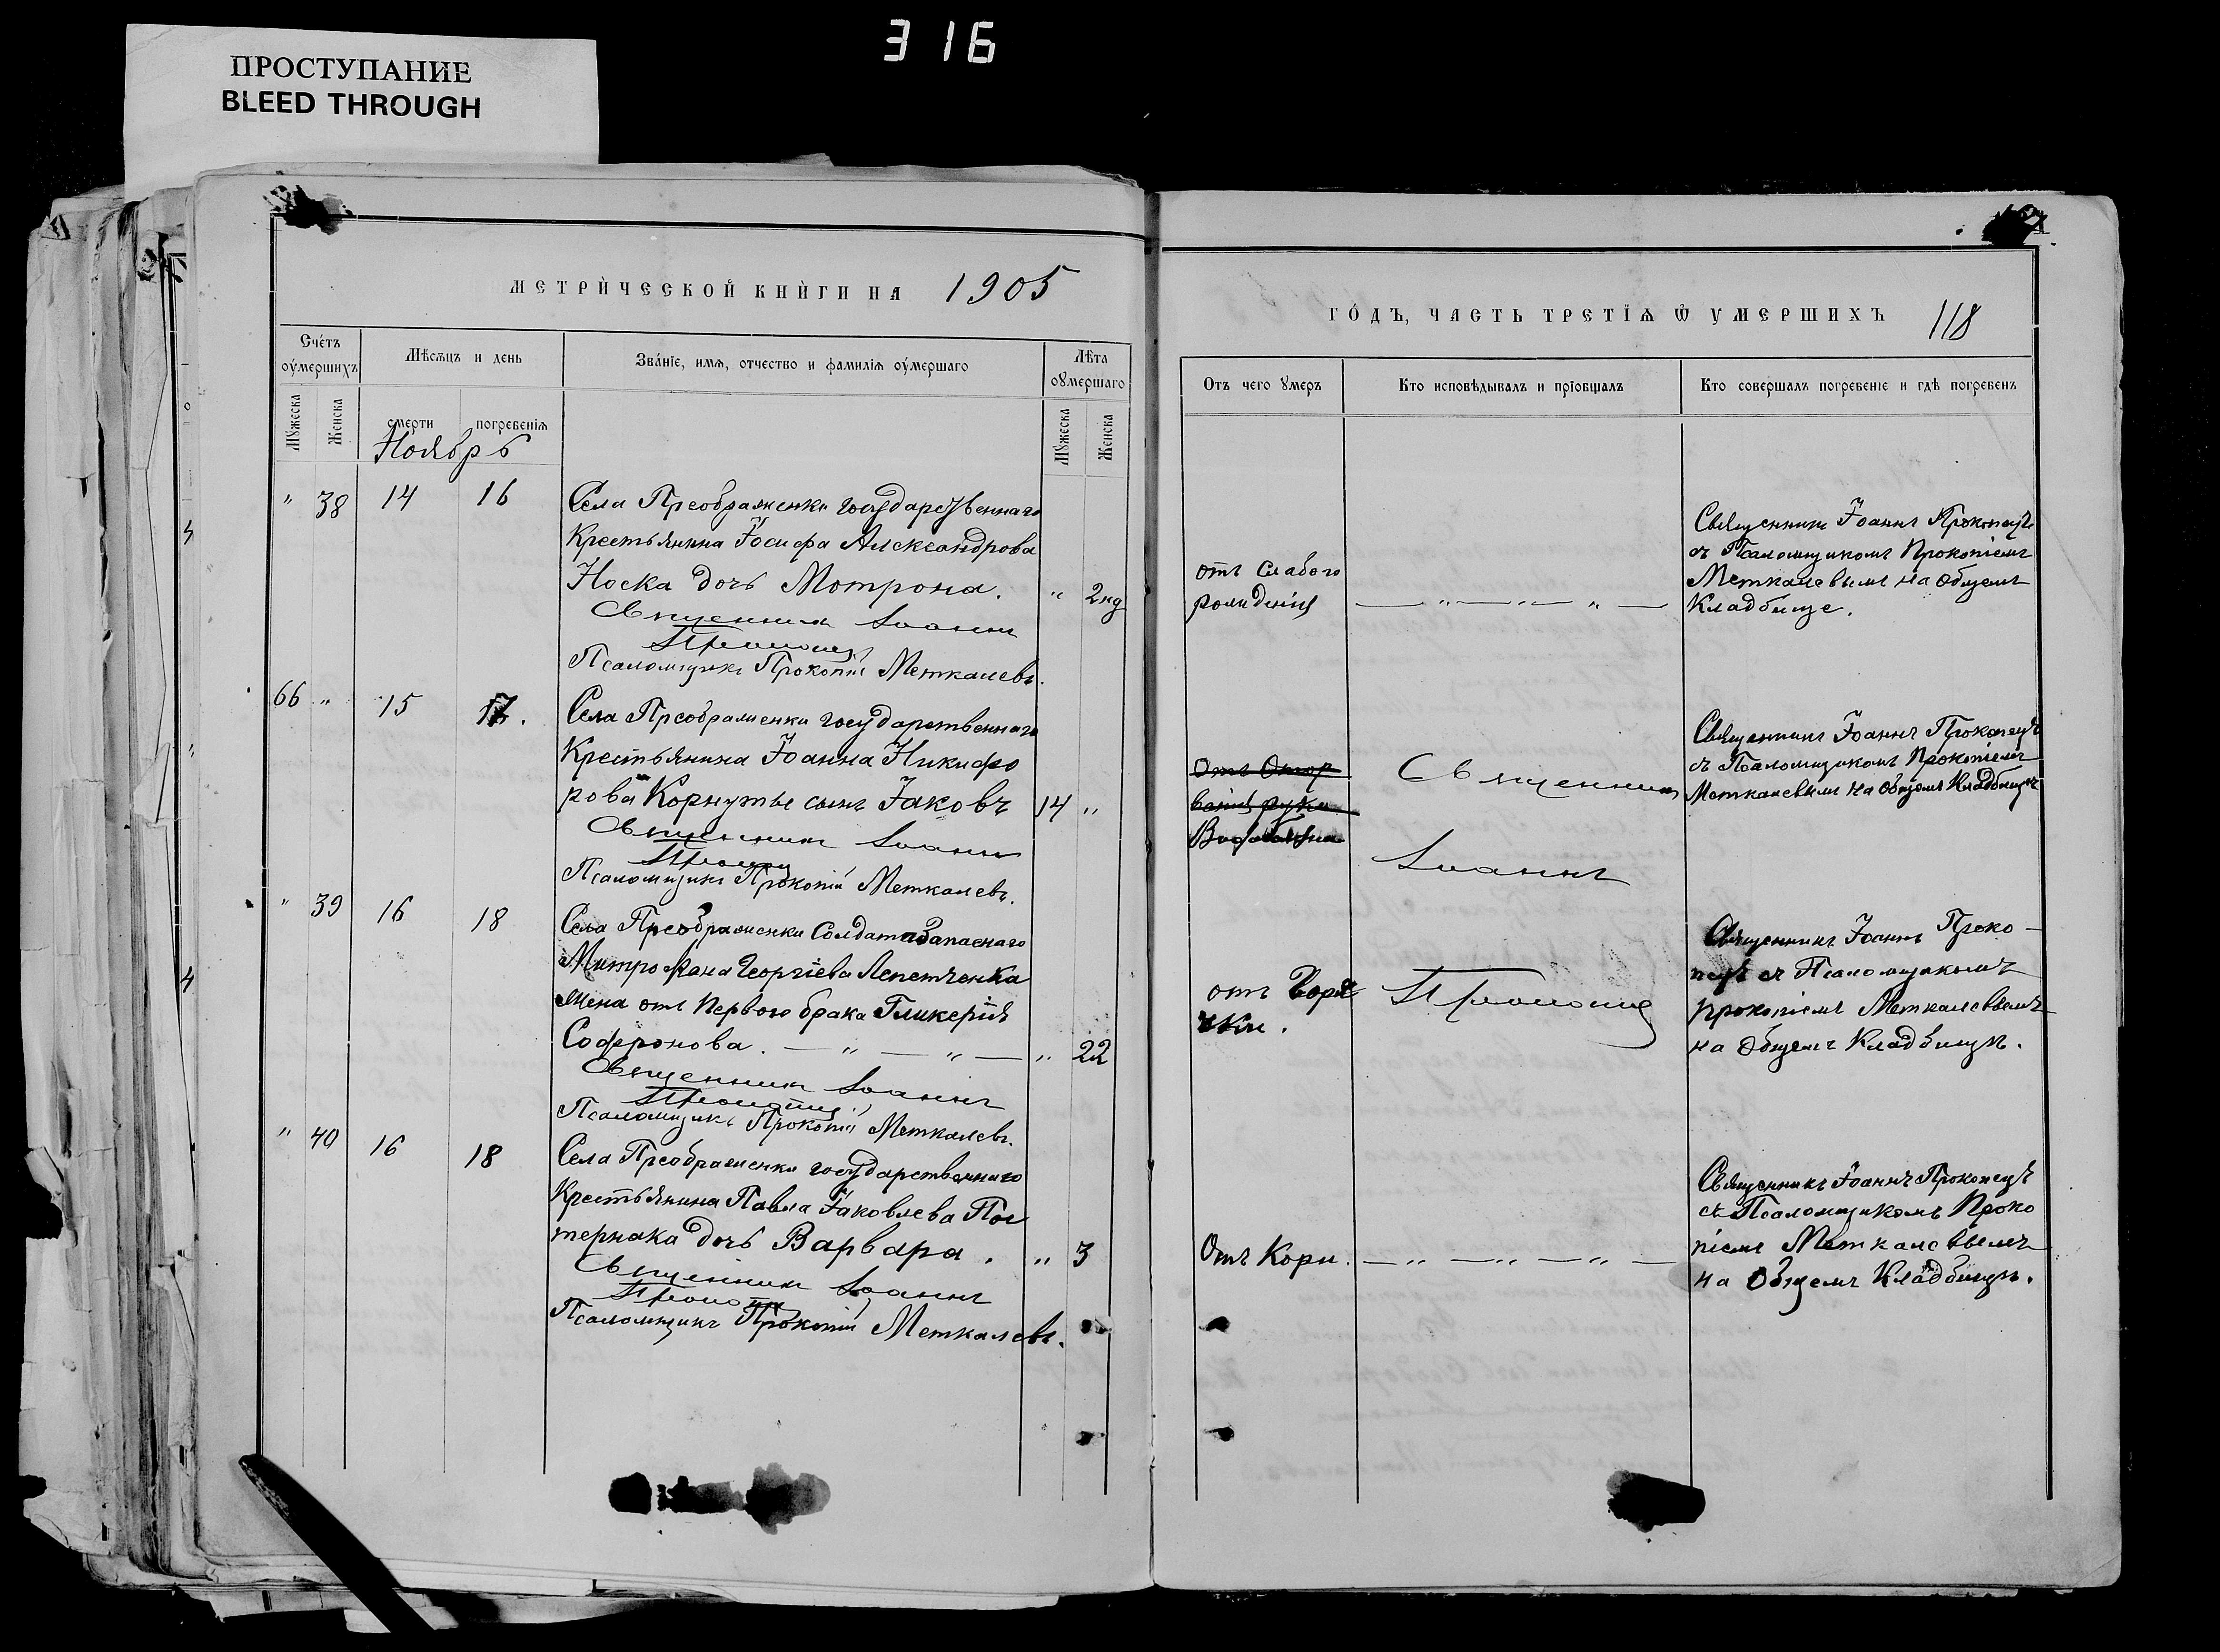 316
ПРОСТУПАНИЕ
BLEED THROUGH
МЕТРИЧЕСКОЙ КНИГИ НА 1905
Счетъ оумершихъ
Мѣсяцъ и день
Званіе, имя, отчество и фамилія оумершаго
Лѣта оумершаго
Мужеска
Женска
смерти
погребенія
Мужеска
Женска
Ноябрь
" 38 14 16
Села Преображенки государственнаго
Крестьянина Іосифа Александрова
Носка дочь Мотрона. " 2 нд
Священник Іоаннъ
Прокопец
Псаломщикъ Прокопій Меткалевъ.
66 " 15 17.
Села Преображенки государственнаго
Крестьянина Іоанна Никифо
рова Корнутье сынъ Іаковъ 14 "
Священник Іоаннъ
Прокопец
Псаломщикъ Прокопій Меткалевъ.
" 39 16 18
Села Преображенки Солдата Запаснаго
Митрофана Георгіева Лепетченка
Жена отъ Первого брака Гликерія
Софронова. — " — " — " 22
Священник Іоаннъ
Прокопец
Псаломщикъ Прокопій Меткалевъ.
" 40 16 18
Села Преображенки государственнаго
Крестьянина Павла Іаковлева Пос
тернака дочь Варвара. " 3
Священник Іоаннъ
Прокопец
Псаломщикъ Прокопій Меткалевъ.
ГОДЪ, ЧАСТЬ ТРЕТІЯ Ѿ УМЕРШИХЪ 118
Отъ чего умеръ
Кто исповѣдывалъ и пріобщалъ
Кто совершалъ погребеніе и гдѣ погребенъ
отъ слабого
рожденія
— " — " — " —
Священникъ Іоаннъ Прокопецъ
съ Псаломщикомъ Прокопіемъ
Меткалевымъ на общемъ
Кладбище.
Отъ Отор
ванія руки
Священник
Іоаннъ
Прокопец
Священникъ Іоаннъ Прокопецъ
съ Псаломщикомъ Прокопіемъ
Меткалевымъ на общемъ Кладбищѣ
отъ Горя
чки.
Священникъ Іоаннъ Проко-
пецъ съ Псаломщикомъ
прокопіемъ Меткалевымъ
на Общемъ Кладбищѣ.
Отъ Кори.
— " — " — " —
Священникъ Іоаннъ Прокопецъ
съ Псаломщикомъ Проко
піемъ Меткалевымъ
на Общемъ Кладбищѣ.